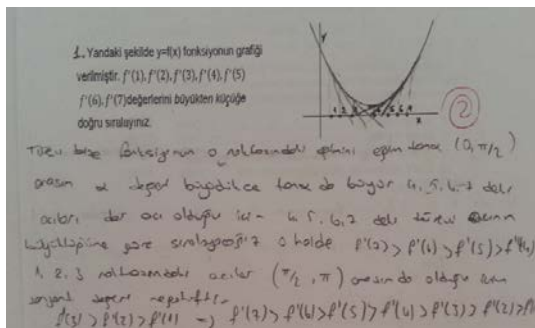 1. Yandaki şekilde y=f(x) fonksiyonun grafiği
verilmiştir. f'(1), f'(2), f'(3), f'(4), f'(5)
f'(6), f'(7) değerlerini büyükten küçüğe
doğru sıralayınız.
y
1 2 3 4 5 6 7
x
2
Türev bize fonksiyonun o noktasındaki eğimini eğim tanα (0, π/2)
arasın α değeri büyüdükce tanα da büyür 4, 5, 6, 7 deki
açıları dar açı olduğu için 4, 5, 6, 7 deki türevi açının
büyüklüğüne göre sıralayacağız o halde f'(7) > f'(6) > f'(5) > f'(4)
1, 2, 3 noktasındaki açılar (π/2, π) arasında olduğu için
değeri negatiftir
f'(3) > f'(2) > f'(1) → f'(7) > f'(6) > f'(5) > f'(4) > f'(3) > f'(2) > f'(1)